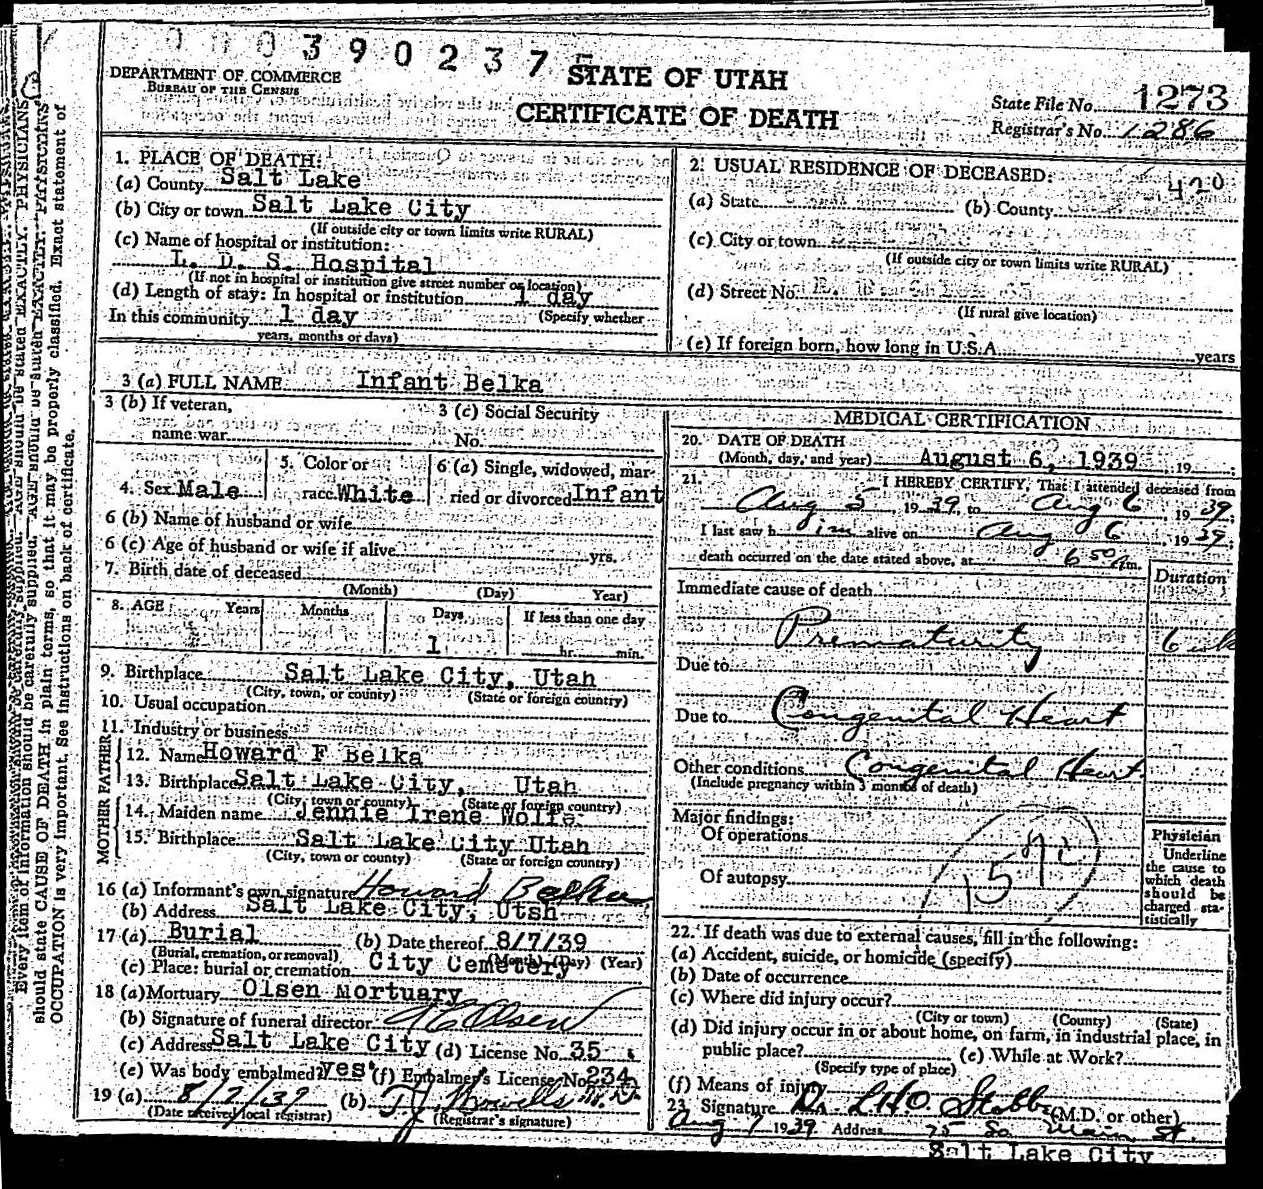 390237
DEPARTMENT OF COMMERCE
BUREAU OF THE CENSUS
STATE OF UTAH
CERTIFICATE OF DEATH
State File No. 1273
Registrar's No. 1286
1. PLACE OF DEATH:
(a) County Salt Lake
(b) City or town Salt Lake City
(If outside city or town limits write RURAL)
(c) Name of hospital or institution:
L. D. S. Hospital
(If not in hospital or institution give street number or location)
(d) Length of stay: In hospital or institution 1 day
In this community 1 day (Specify whether
years, months or days)
2. USUAL RESIDENCE OF DECEASED:
420
(a) State (b) County
(c) City or town
(If outside city or town limits write RURAL)
(d) Street No.
(If rural give location)
(e) If foreign born, how long in U.S.A. years
3 (a) FULL NAME Infant Belka
3 (b) If veteran,
name war
3 (c) Social Security
No.
4. Sex Male
5. Color or
race White
6 (a) Single, widowed, mar-
ried or divorced Infant
6 (b) Name of husband or wife
6 (c) Age of husband or wife if alive yrs.
7. Birth date of deceased
(Month) (Day) Year)
8. AGE Years Months Days If less than one day
1 hr. min.
9. Birthplace Salt Lake City, Utah
(City, town, or county) (State or foreign country)
10. Usual occupation
11. Industry or business
FATHER
12. Name Howard F Belka
13. Birthplace Salt Lake City, Utah
(City, town or county) (State or foreign country)
MOTHER
14. Maiden name Jennie Irene Wolfe
15. Birthplace Salt Lake City Utah
(City, town or county) (State or foreign country)
16 (a) Informant's own signature Howard Belka
(b) Address Salt Lake City, Utsh
17 (a) Burial (b) Date thereof 8/7/39
(Burial, cremation, or removal) (Month) (Day) (Year)
(c) Place: burial or cremation City Cemetery
18 (a) Mortuary Olsen Mortuary
(b) Signature of funeral director Olsen
(c) Address Salt Lake City (d) License No. 35
(e) Was body embalmed? yes (f) Embalmer's License No. 234
19 (a) 8/7/39 (b)
(Date received local registrar) (Registrar's signature)
MEDICAL CERTIFICATION
20. DATE OF DEATH
(Month, day, and year) August 6, 1939 19
21. I HEREBY CERTIFY, That I attended deceased from
Aug 5, 1939, to Aug 6, 1939.
I last saw him alive on Aug 6, 1939.
death occurred on the date stated above, at 6 50 A m.
Duration
Immediate cause of death
Prematurity
Due to
Due to Congenital Heart
Other conditions Congenital Heart
(Include pregnancy within 3 months of death)
Major findings:
Of operations
Of autopsy
Physician
Underline
the cause to
which death
should be
charged sta-
tistically
22. If death was due to external causes, fill in the following:
(a) Accident, suicide, or homicide (specify)
(b) Date of occurrence
(c) Where did injury occur?
(City or town) (County) (State)
(d) Did injury occur in or about home, on farm, in industrial place, in
public place? (e) While at Work?
(Specify type of place)
(f) Means of injury
23. Signature (M.D. or other)
Aug 7 1939 Address 75 So Main St.
Salt Lake City
should state CAUSE OF DEATH in plain terms, so that it may be properly classified. Exact statement of
OCCUPATION is very important. See instructions on back of certificate.